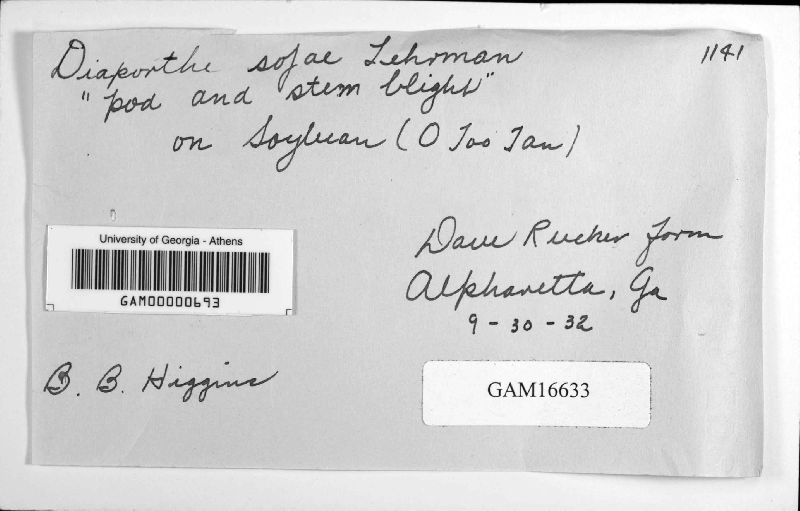 1141
Diaporthe sojae Lehman
"pod and stem blight"
on Soybean (O Too Tan)
University of Georgia - Athens
GAM00000693
Dave Rucker farm
Alpharetta, Ga
9 - 30 - 32
B. B. Higgins
GAM16633